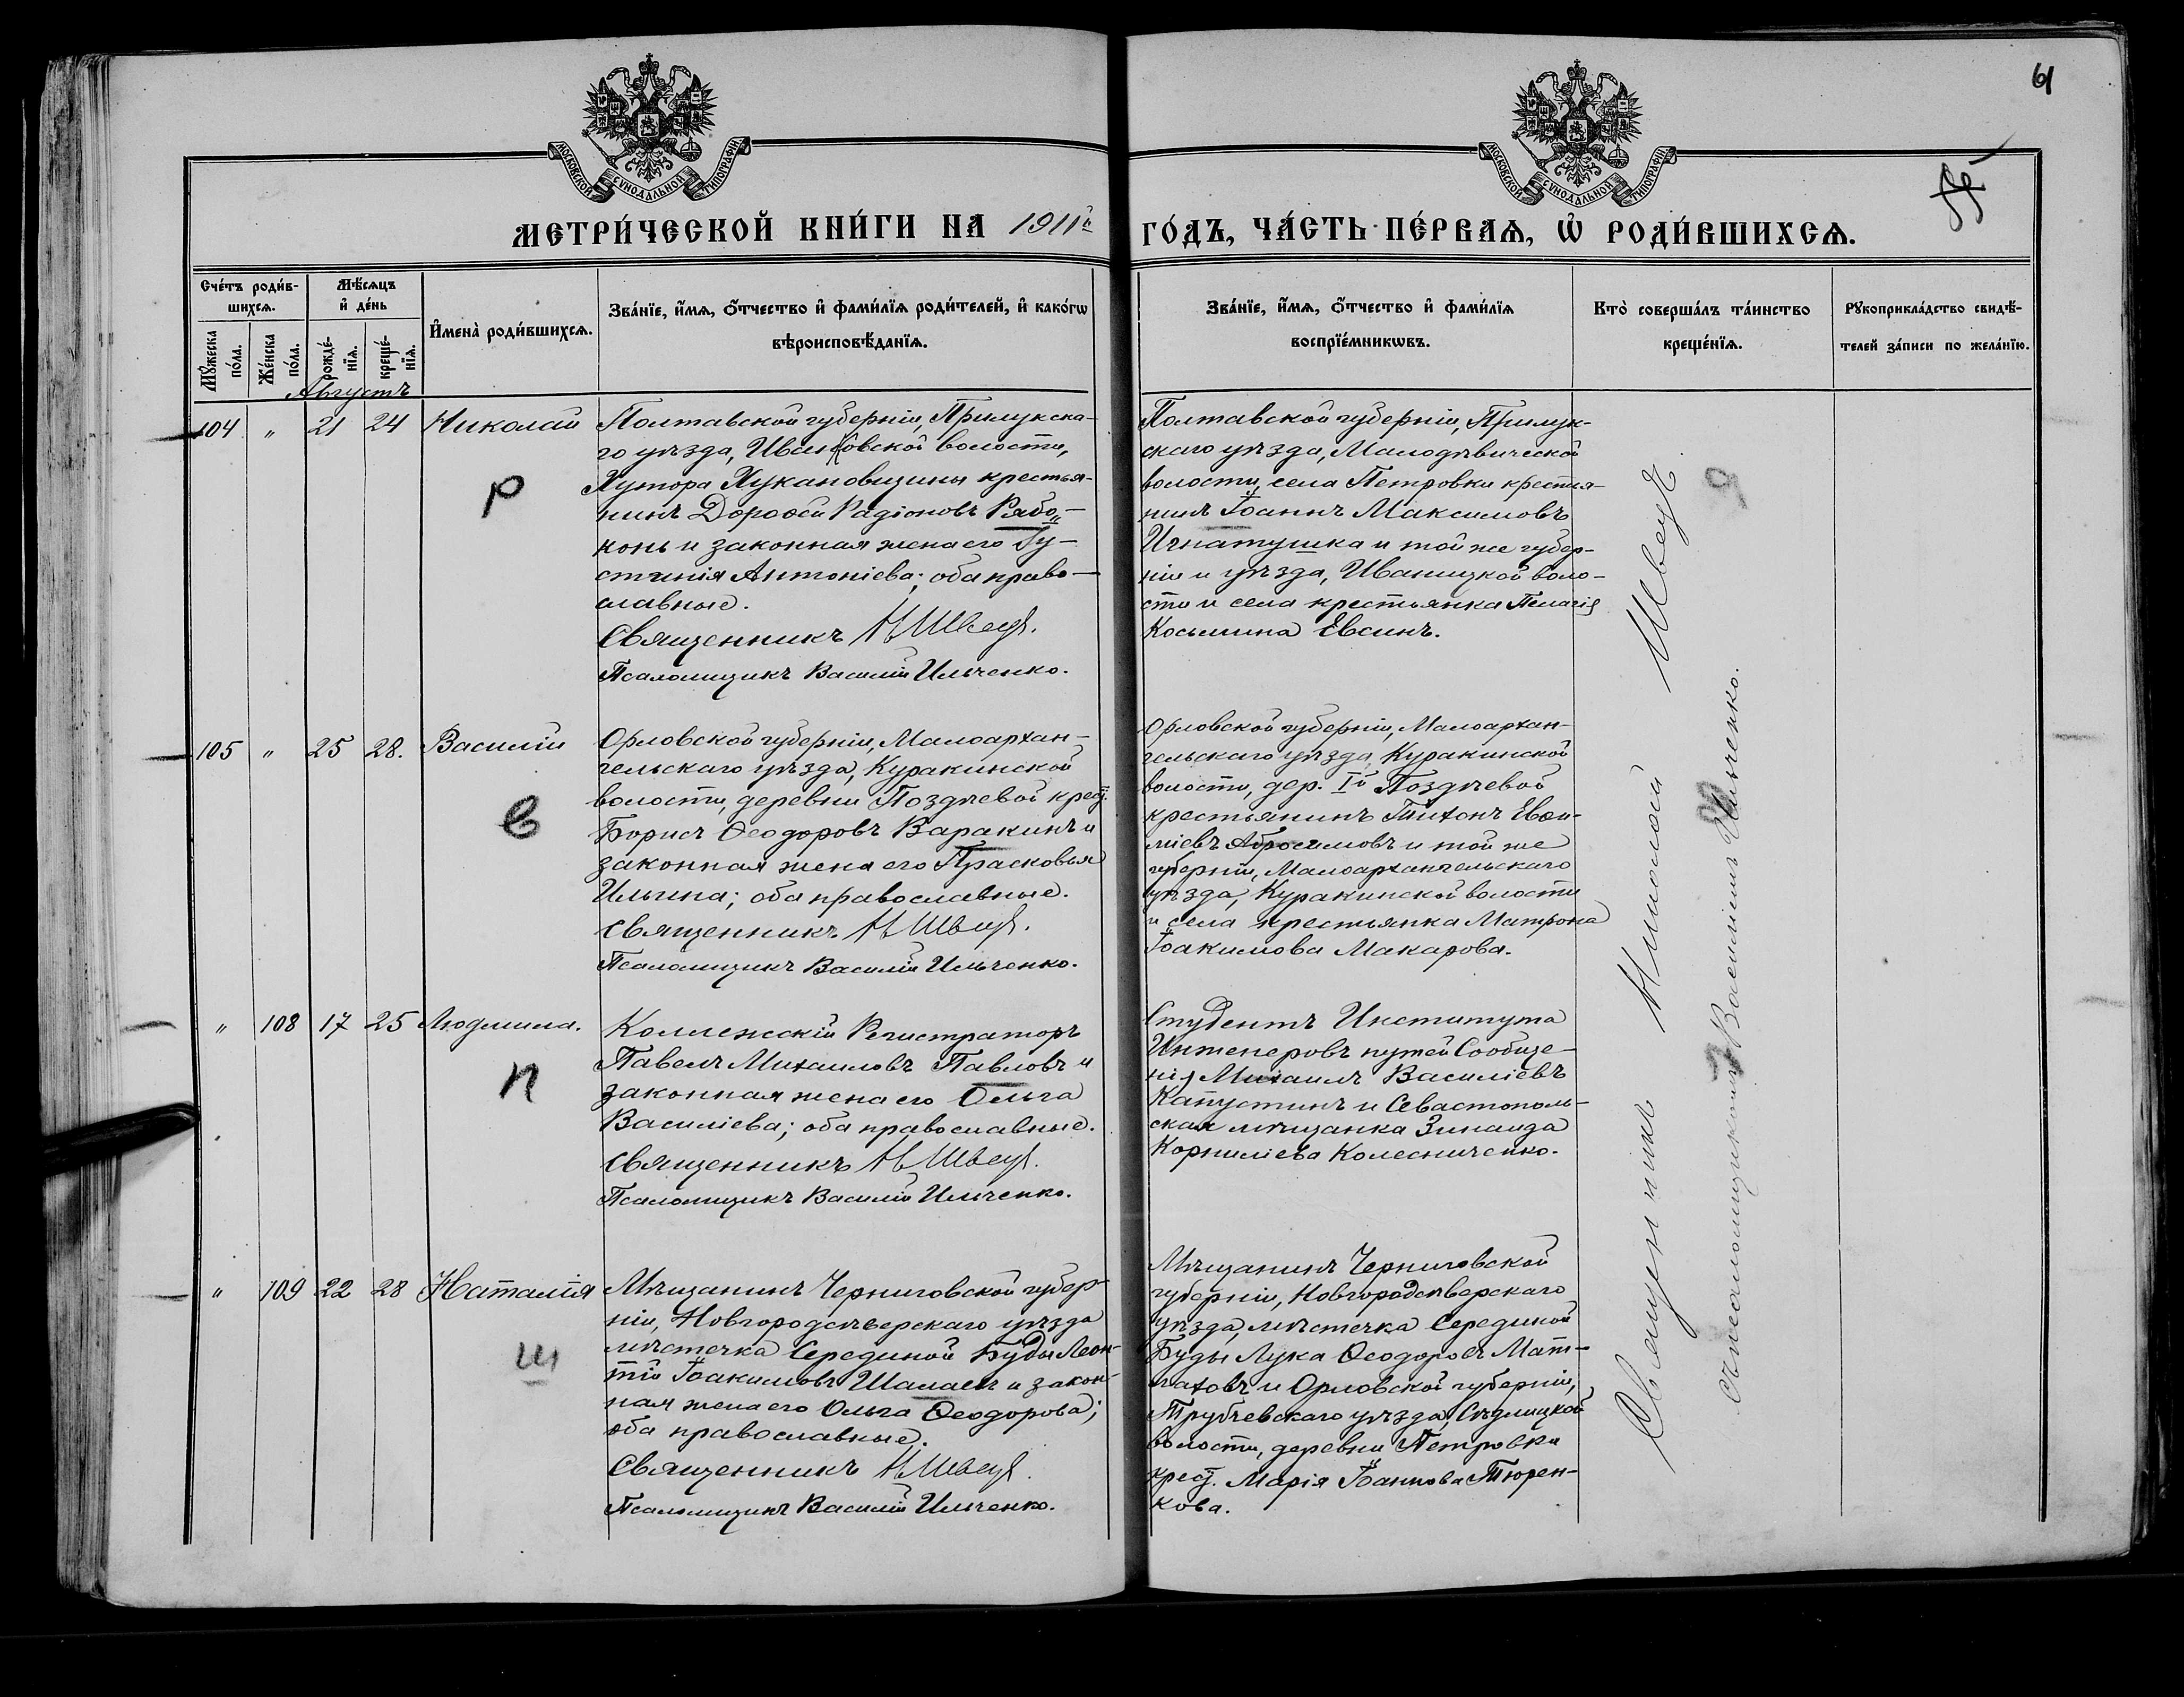 61
МОСКОВСКОЙ СѴНОДАЛЬНОЙ ТИПОГРАФІИ
МОСКОВСКОЙ СѴНОДАЛЬНОЙ ТИПОГРАФІИ
МЕТРИ́ЧЕСКОЙ КНИ́ГИ НА 1911й ГО́ДЪ, ЧА́СТЬ ПЕ́РВАѦ, Ѡ҆ РОДИ́ВШИХСѦ.
Сче́тъ роди́в-
шихсѧ.
Мꙋ́жеска по́ла.
Же́нска по́ла.
Мѣ́сѧцъ
и҆ де́нь
рожде́-нїѧ.
креще́-нїѧ.
И҆мена̀ роди́вшихсѧ.
Зва́нїе, и҆́мѧ, ѻ҆́тчество и҆ фами́лїѧ роди́телей, и҆ како́гѡ
вѣроисповѣ́данїѧ.
Зва́нїе, и҆́мѧ, ѻ҆́тчество и҆ фами́лїѧ
воспрїе́мникѡвъ.
Кто̀ соверша́лъ та́инство
креще́нїѧ.
Рꙋкоприкла́дство свидѣ́-
телей за́писи по жела́нїю.
Августъ
104 " 21 24 Николай
Р
Полтавской губерніи, Прилукска-
го уѣзда, Иванковской волости,
Хутора Лукановщины крестья-
нинъ Дороѳей Радіоновъ Рябо-
конь и законная жена его Іу-
стинія Антоніева; оба право-
славные.
Священникъ Н Швецъ.
Псаломщикъ Василій Ильченко.
Полтавской губерніи, Прилук-
скаго уѣзда, Малодѣвической
волости, села Петровки крестья-
нинъ Іоаннъ Максимовъ
Игнатушка и той же губер-
ніи и уѣзда, Иваницкой воло-
сти и села крестьянка Пелагія
Косьмина Евсинъ.
105 " 25 28. Василій
В
Орловской губерніи, Малоархан-
гельскаго уѣзда, Куракинской
волости, деревни Поздѣевой крест.
Борисъ Ѳеодоровъ Варакинъ и
законная жена его Прасковья
Ильина; оба православные.
Священникъ Н Швецъ.
Псаломщикъ Василій Ильченко.
Орловской губерніи, Малоархан-
гельскаго уѣзда, Куракинской
волости, дер. Iй Поздѣевой
крестьянинъ Тихонъ Евѳи-
міевъ Абросимовъ и той же
губерніи, Малоархангельскаго
уѣзда, Куракинской волости
и села крестьянка Матрона
Іоакимова Макарова.
" 108 17 25 Людмила.
П
Коллежскій Регистраторъ
Павелъ Михаиловъ Павловъ и
законная жена его Ольга
Василіева; оба православные.
Священникъ Н Швецъ.
Псаломщикъ Василій Ильченко.
Студентъ Института
Инженеровъ путей Сообще-
нія Михаилъ Василіевъ
Капустинъ и Севастополь-
ская мѣщанка Зинаида
Корниліева Колесниченко.
" 109 22 28 Наталія
Ш
Мѣщанинъ Черниговской губер-
ніи, Новгородсѣверскаго уѣзда
мѣстечка Серединой Буды Леон-
тій Іоакимовъ Шалаевъ и закон-
ная жена его Ольга Ѳеодорова;
оба православные.
Священникъ Н Швецъ.
Псаломщикъ Василій Ильченко.
Мѣщанинъ Черниговской
губерніи, Новгородсѣверскаго
уѣзда, мѣстечка Серединой
Буды Лука Ѳеодоровъ Мат-
лаховъ и Орловской губерніи,
Трубчевскаго уѣзда, Сѣдлицкой
волости, деревни Петровки
крест. Марія Іоаннова Тюрен-
кова.
Священникъ Николай Швецъ
съ псаломщикомъ Василіемъ Ильченко.